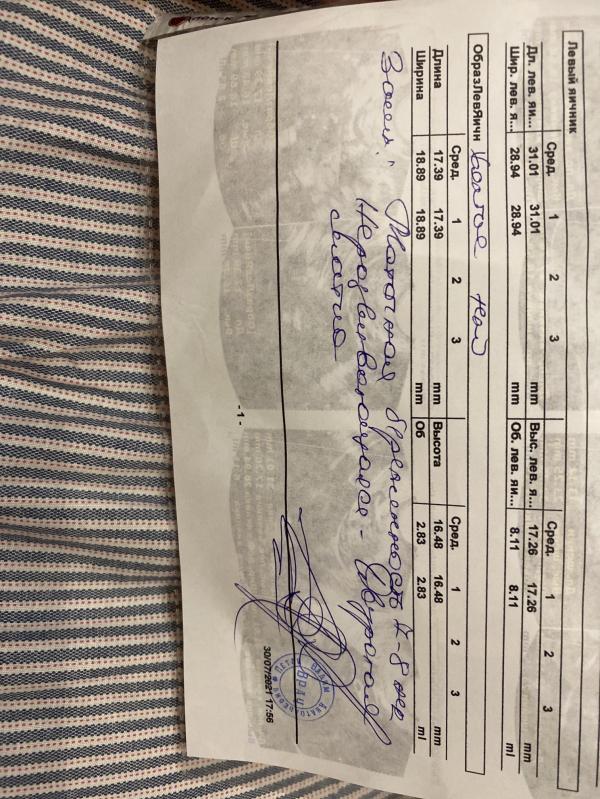 Левый яичник
Сред. 1 2 3 Сред. 1 2 3
Дл. лев. яи... 31.01 31.01 mm Выс. лев. я... 17.26 17.26 mm
Шир. лев. я... 28.94 28.94 mm Об. лев. яи... 8.11 8.11 ml
ОбразЛевЯичн Желтое
Сред. 1 2 3 Сред. 1 2 3
Длина 17.39 17.39 mm Высота 16.48 16.48 mm
Ширина 18.89 18.89 mm Об 2.83 2.83 ml
Закл: Маточная беременность 7-8 нед
Неразвивающаяся -
ВРАЧ
30/07/2021 17:56
- 1 -